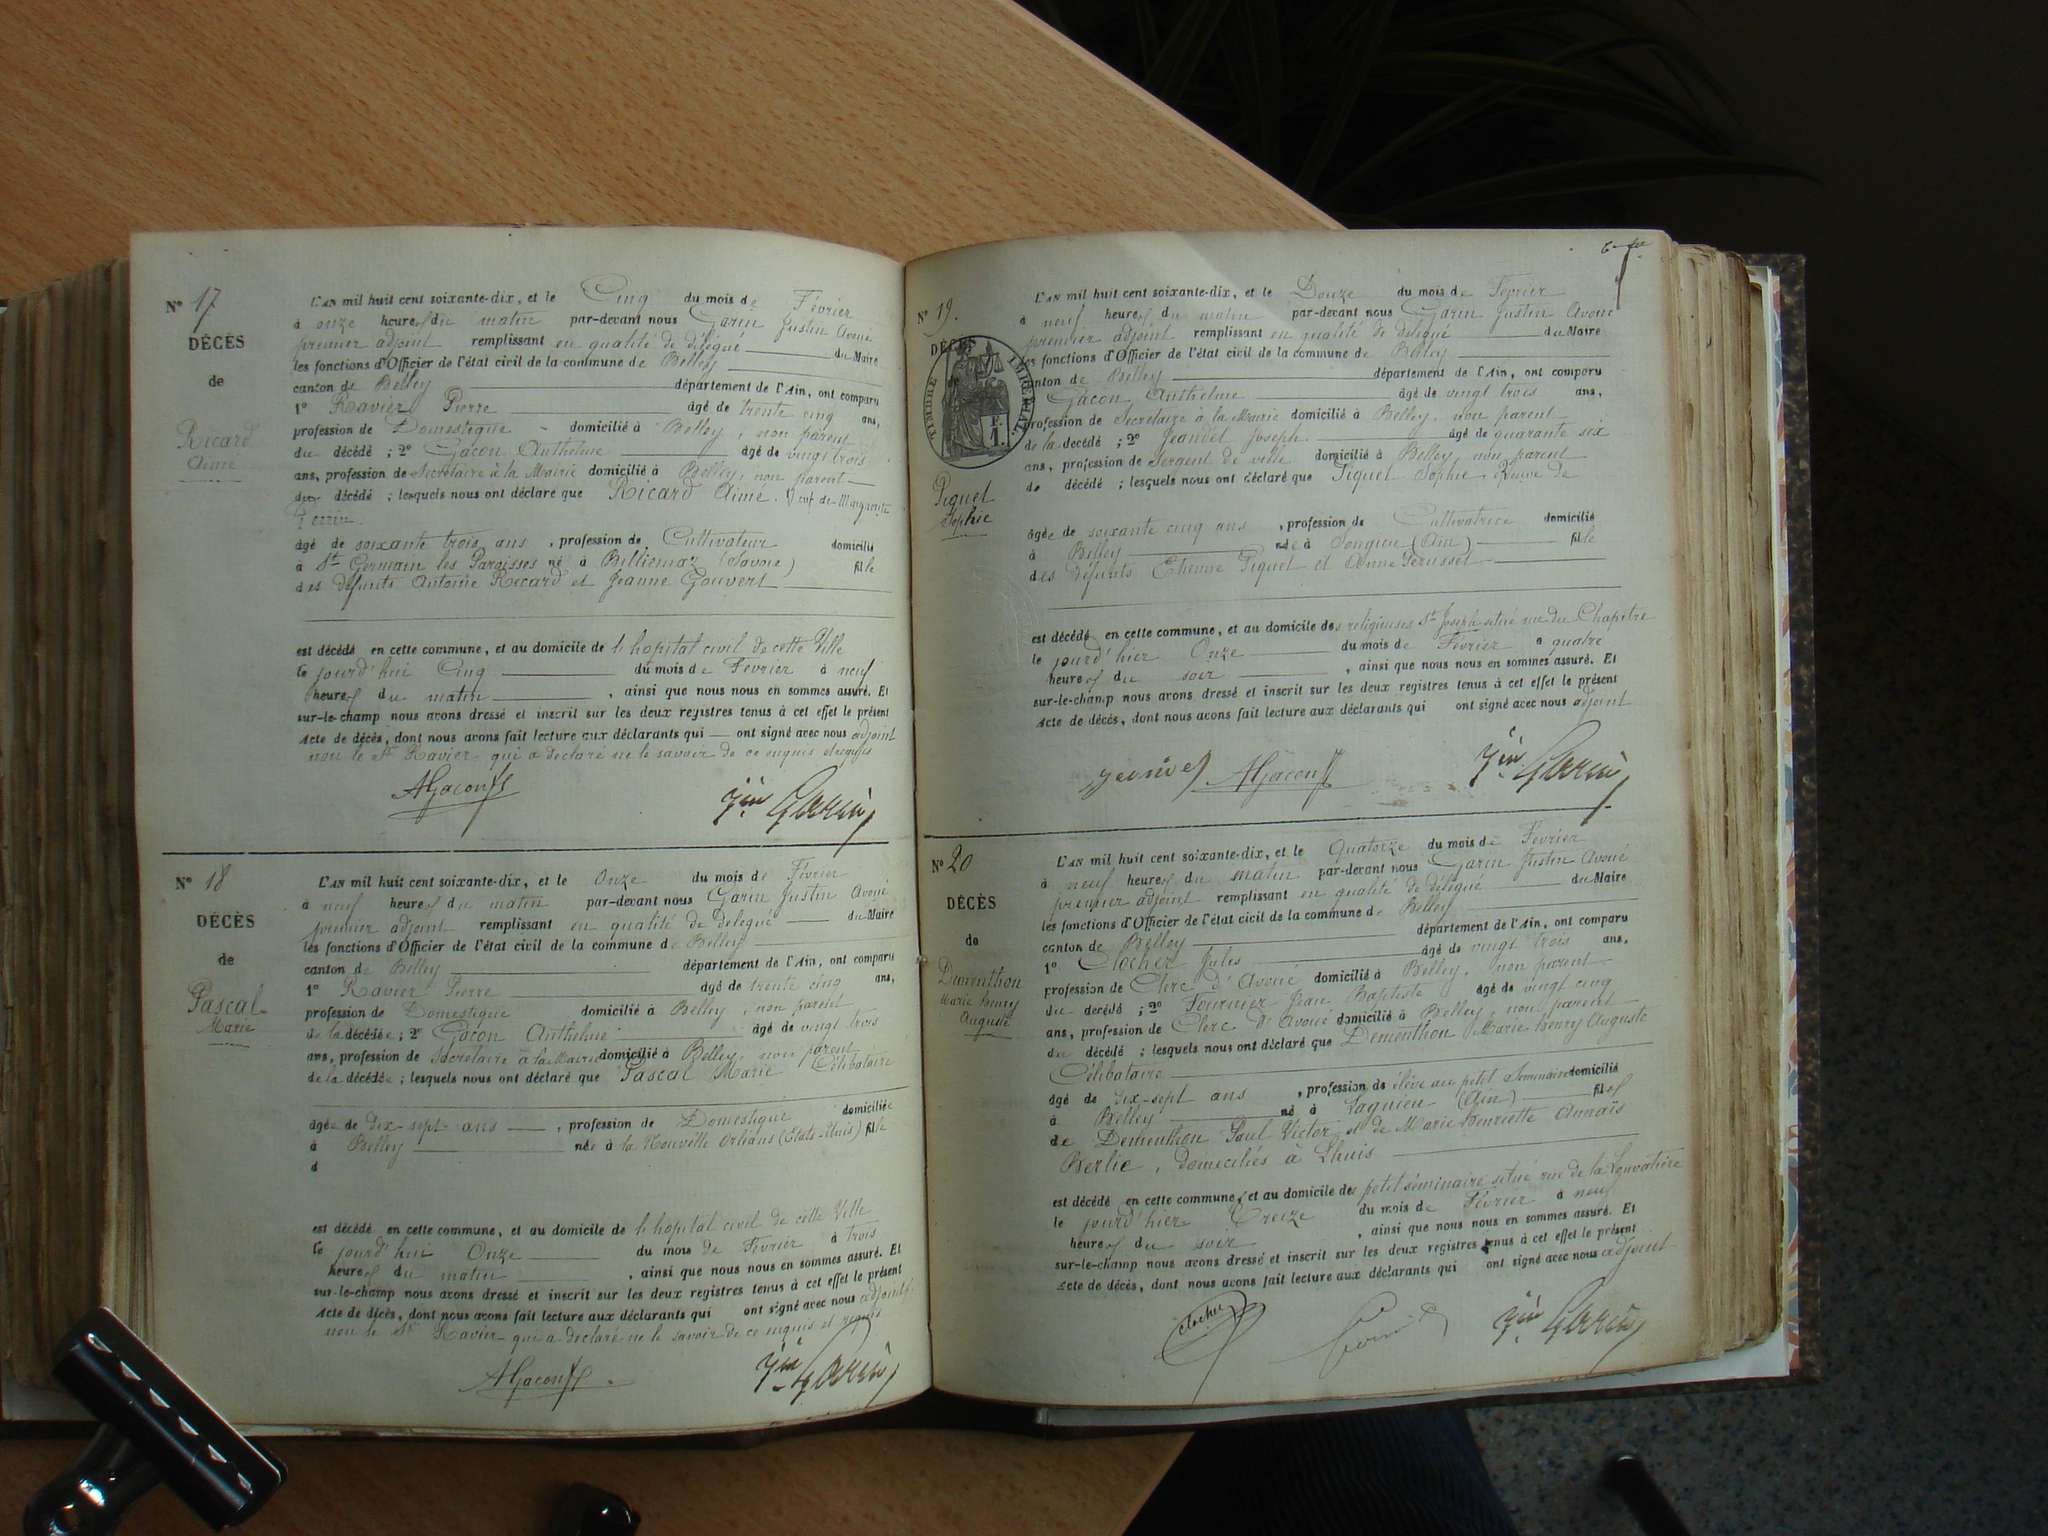 N° 17
DÉCÈS
de
Ricard
Aimé
L'AN mil huit cent soixante-dix, et le Cinq du mois de Février
à onze heures du matin par-devant nous Garin Justin Avoué
premier adjoint remplissant en qualité de délégué du Maire
les fonctions d'Officier de l'état civil de la commune de Belley
canton de Belley département de l'Ain, ont comparu
1° Ravier Pierre âgé de trente cinq ans,
profession de Domestique domicilié à Belley, non parent
du décédé ; 2° Gacon Anthelme âgé de vingt trois
ans, profession de Secrétaire à la Mairie domicilié à Belley, non parent
du décédé ; lesquels nous ont déclaré que Ricard Aimé. Veuf de Marguerite
Perrin.
âgé de soixante trois ans , profession de Cultivateur domicilié
à St Germain les Paroisses né à Billiemaz (Savoie) fils
des défunts Antoine Ricard et Jeanne Gouvert
est décédé en cette commune, et au domicile de l'hopital civil de cette Ville
le jourd'hui Cinq du mois de Février à neuf
heures du matin , ainsi que nous nous en sommes assuré. Et
sur-le-champ nous avons dressé et inscrit sur les deux registres tenus à cet effet le présent
Acte de décès, dont nous avons fait lecture aux déclarants qui ont signé avec nous adjoint
non le Sr Ravier qui a déclaré ne le savoir de ce enquis et requis
AGacon
Jin Garin
N° 18
DÉCÈS
de
Pascal
Marie
L'AN mil huit cent soixante-dix, et le Onze du mois de Février
à neuf heures du matin par-devant nous Garin Justin Avoué
premier adjoint remplissant en qualité de délégué du Maire
les fonctions d'Officier de l'état civil de la commune de Belley
canton de Belley département de l'Ain, ont comparu
1° Ravier Pierre âgé de trente cinq ans,
profession de Domestique domicilié à Belley, non parent
de la décédée ; 2° Gacon Anthelme âgé de vingt trois
ans, profession de Secrétaire à la Mairie domicilié à Belley, non parent
de la décédée ; lesquels nous ont déclaré que Pascal Marie Célibataire
âgée de dix-sept ans , profession de Domestique domiciliée
à Belley née à la Nouvelle Orléans (Etats-Unis) fille
d
est décédé en cette commune, et au domicile de l'hopital civil de cette Ville
le jourd'hui Onze du mois de Février à trois
heures du matin , ainsi que nous nous en sommes assuré. Et
sur-le-champ nous avons dressé et inscrit sur les deux registres tenus à cet effet le présent
Acte de décès, dont nous avons fait lecture aux déclarants qui ont signé avec nous adjoint
non le Sr Ravier qui a déclaré ne le savoir de ce enquis et requis
AGacon
Jin Garin
N° 19.
DÉCÈS
de
TIMBRE IMPÉRIAL
F.
1.
Piquet
Sophie
L'AN mil huit cent soixante-dix, et le Douze du mois de Février
à neuf heures du matin par-devant nous Garin Justin Avoué
premier adjoint remplissant en qualité de délégué du Maire
les fonctions d'Officier de l'état civil de la commune de Belley
canton de Belley département de l'Ain, ont comparu
Gacon Anthelme âgé de vingt trois ans,
profession de Secrétaire à la Mairie domicilié à Belley, non parent
de la décédé ; 2° Jeandet Joseph âgé de quarante six
ans, profession de Sergent de ville domicilié à Belley, non parent
de décédé ; lesquels nous ont déclaré que Piquet Sophie Veuve de
âgée de soixante cinq ans , profession de Cultivatrice domicilié
à Belley née à Songieu (Ain) fille
des défunts Etienne Piquet et Anne Perusset
est décédé en cette commune, et au domicile des religieuses St Joseph situé rue du Chapitre
le jourd'hier Onze du mois de Février à quatre
heures du soir , ainsi que nous nous en sommes assuré. Et
sur-le-champ nous avons dressé et inscrit sur les deux registres tenus à cet effet le présent
Acte de décès, dont nous avons fait lecture aux déclarants qui ont signé avec nous adjoint
AGacon
Jin Garin
N° 20
DÉCÈS
de
Dementhon
Marie Henry
Auguste
L'AN mil huit cent soixante-dix, et le Quatorze du mois de Février
à neuf heures du matin par-devant nous Garin Justin Avoué
premier adjoint remplissant en qualité de délégué du Maire
les fonctions d'Officier de l'état civil de la commune de Belley
canton de Belley département de l'Ain, ont comparu
1° Clocher Jules âgé de vingt trois ans,
profession de Clerc d'Avoué domicilié à Belley, non parent
du décédé ; 2° Fournier Jean Baptiste âgé de vingt cinq
ans, profession de Clerc d'Avoué domicilié à Belley, non parent
du décédé ; lesquels nous ont déclaré que Dementhon Marie Henry Auguste
Célibataire
âgé de dix-sept ans , profession de élève au petit Séminaire domicilié
à Belley né à Lagnieu (Ain) fils
de Dementhon Paul Victor et de Marie Henriette Annaïs
Berlie, domiciliés à Lhuis
est décédé en cette commune, et au domicile des petit séminaire située rue de la Louvatière
le jourd'hier Treize du mois de Février à neuf
heures du soir , ainsi que nous nous en sommes assuré. Et
sur-le-champ nous avons dressé et inscrit sur les deux registres tenus à cet effet le présent
Acte de décès, dont nous avons fait lecture aux déclarants qui ont signé avec nous adjoint
Clocher
Jin Garin